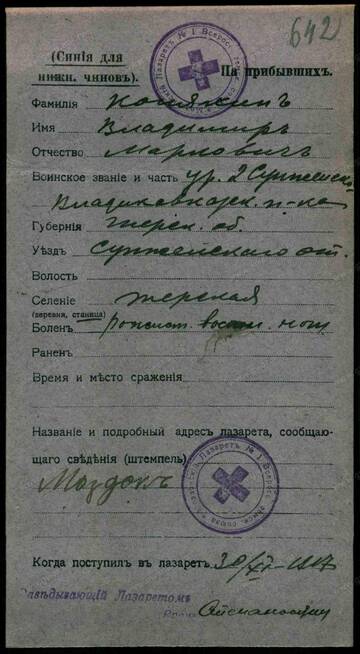 642
(Синія для
нижн. чиновъ).
На прибывшихъ.
Фамилія Конякинъ
Имя Владимиръ
Отчество Марковичъ
Воинское званіе и часть ур. 2 Сунженско-
Владикавказск. п-ка
Губернія Терск. об.
Уѣздъ Сунженскаго от.
Волость
Селеніе Терская
(деревня, станица)
Боленъ ног
Раненъ
Время и мѣсто сраженія
Названіе и подробный адресъ лазарета, сообщаю-
щаго свѣдѣнія (штемпель)
Моздокъ
Когда поступилъ въ лазаретъ 30/XI-1917
Завѣдывающій Лазаретомъ